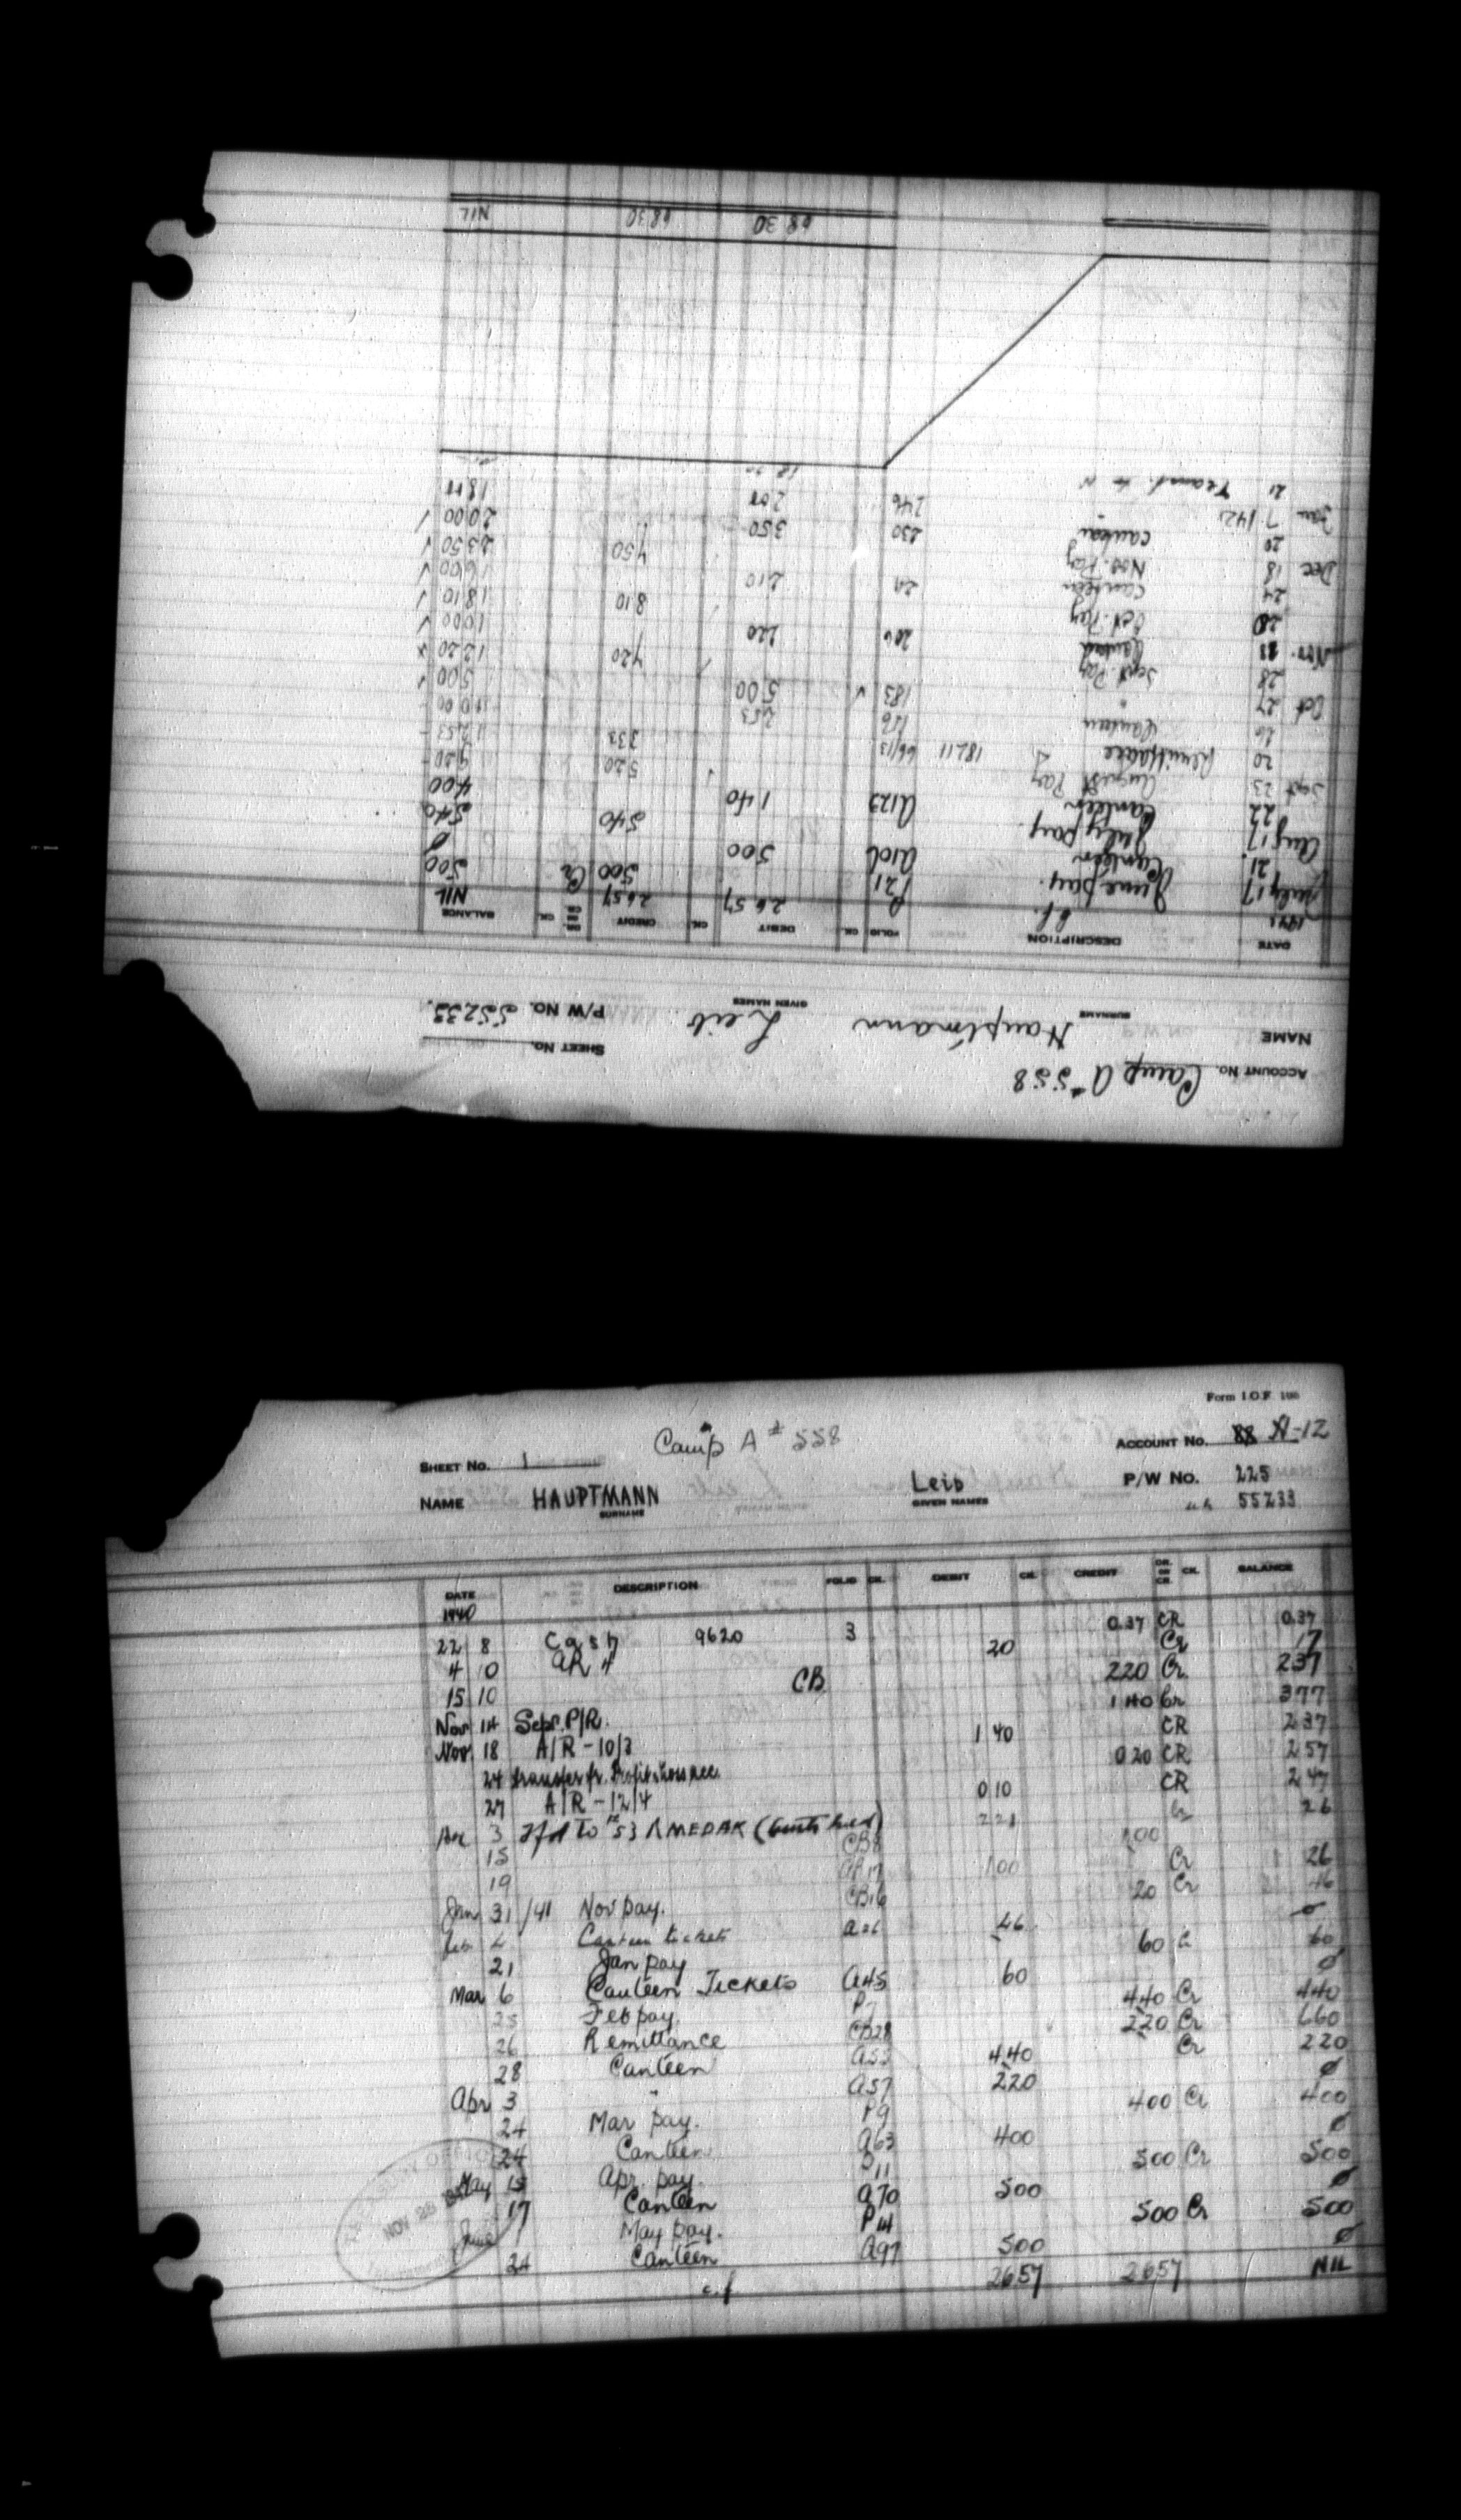 Form I.O.F. 100
Camp A # 558
SHEET No. 1 ACCOUNT No. 88 A-12
NAME HAUPTMANN Leib P/W No. 225
SURNAME GIVEN NAMES 55233
DATE DESCRIPTION FOLIO CK. DEBIT CK. CREDIT DR. OR CR. CK. BALANCE
1940
22 8 Cash 9620 3 0.37 CR 0.37
4 10 AR 4 20 Cr 17
15 10 CB 220 Cr. 237
Nov 14 Sept. P/R. 1 40 Cr 377
Nov 18 A/R - 10/3 1 40 CR 237
24 transfer fr. Profit & Loss acc. 0 20 CR 257
27 A/R - 12/4 0 10 CR 247
3 To 53 MEDAK 221 Cr 26
15 CB8 100
19 100 Cr 26
Jan 31 /41 Nov pay. CB16 20 Cr 46
Feb 4 Canteen tickets 46 ø
21 Jan pay 60 60
Mar 6 Canteen Tickets A45 60 ø
25 Feb pay. P7 440 Cr 440
26 Remittance CB28 220 Cr 660
28 Canteen A55 440 Cr 220
Apr 3 " A57 220 ø
24 Mar pay. P9 400 Cr 400
24 Canteen A63 400 ø
May 15 Apr. pay. P11 500 Cr 500
17 Canteen A70 500 ø
June May pay. P14 500 Cr 500
24 Canteen A97 500 ø
c.f 2657 2657 NIL
NOV 28
ACCOUNT No. Camp A # 558 SHEET No.
NAME Hauptmann Leib P/W No. 55233.
SURNAME GIVEN NAMES
DATE DESCRIPTION FOLIO CK. DEBIT CK. CREDIT DR. OR CR. CK. BALANCE
1941 b.f. 2657 2657 NIL
July 17 June pay. P21 500 Cr 500
21. Canteen A106 500 ø
Aug 17 July pay. 540 540
22 Canteen A123 1 40 400
Sept 23 August Pay 520 920
20 Remittance 18711 66/13 333 1253
26 Canteen 156 253 1000
Oct 27 " 183 √ 500 500 √
28 Sept. Pay 720 1220
Nov. 11 Canteen 206 220 1000 √
20 Oct. Pay 810 1810 √
24 Canteen 210 1600 √
Dec 18 Nov. Pay 750 2350 √
20 canteen 230 350 2000 √
Jan 7 /42 " 246 200 1800
21 Transf. to
6830 6830 NIL